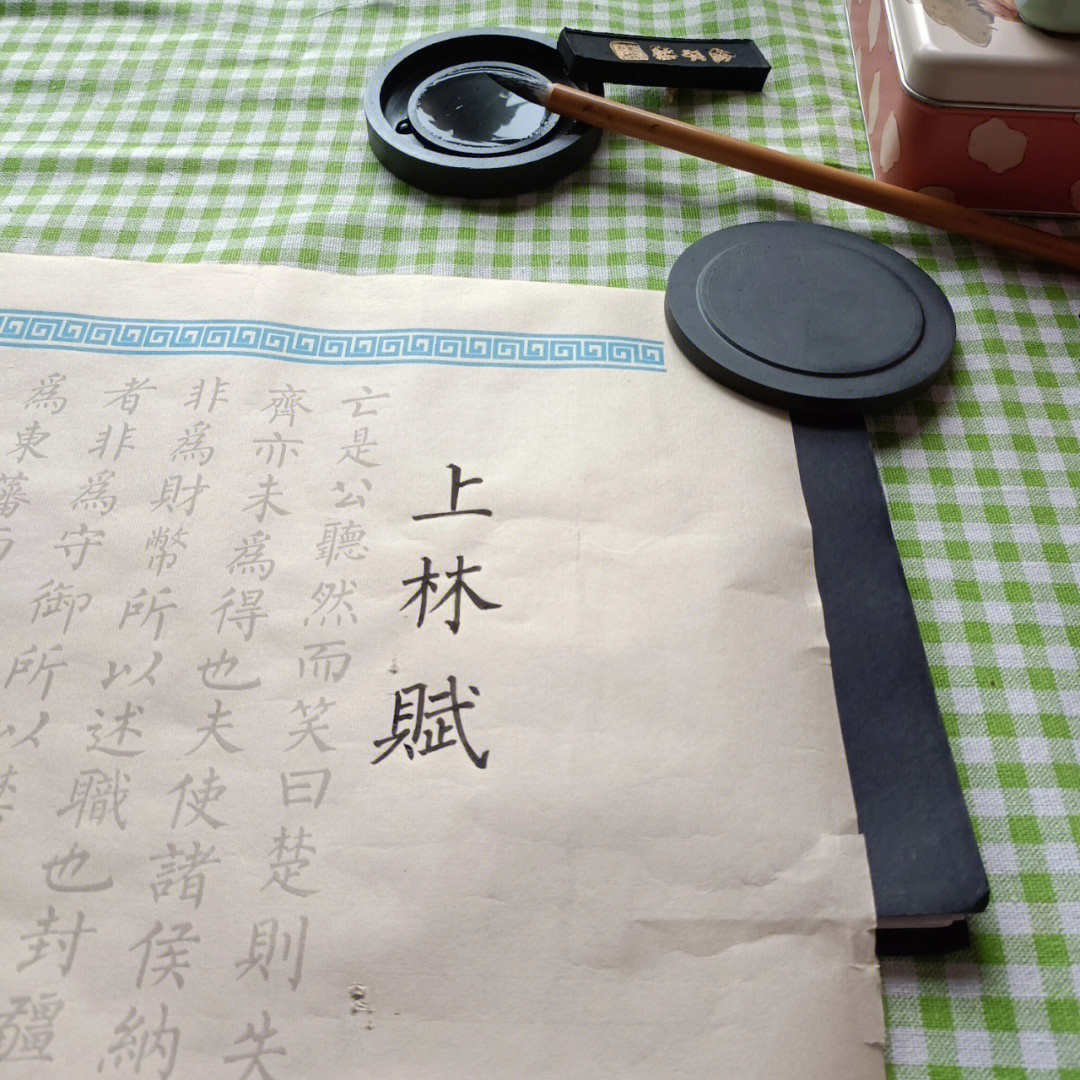 上林賦
亡是公聽然而笑曰楚則失
齊亦未為得也夫使諸侯納
非為財幣所以述職也封疆
者非為守御所以
為東藩